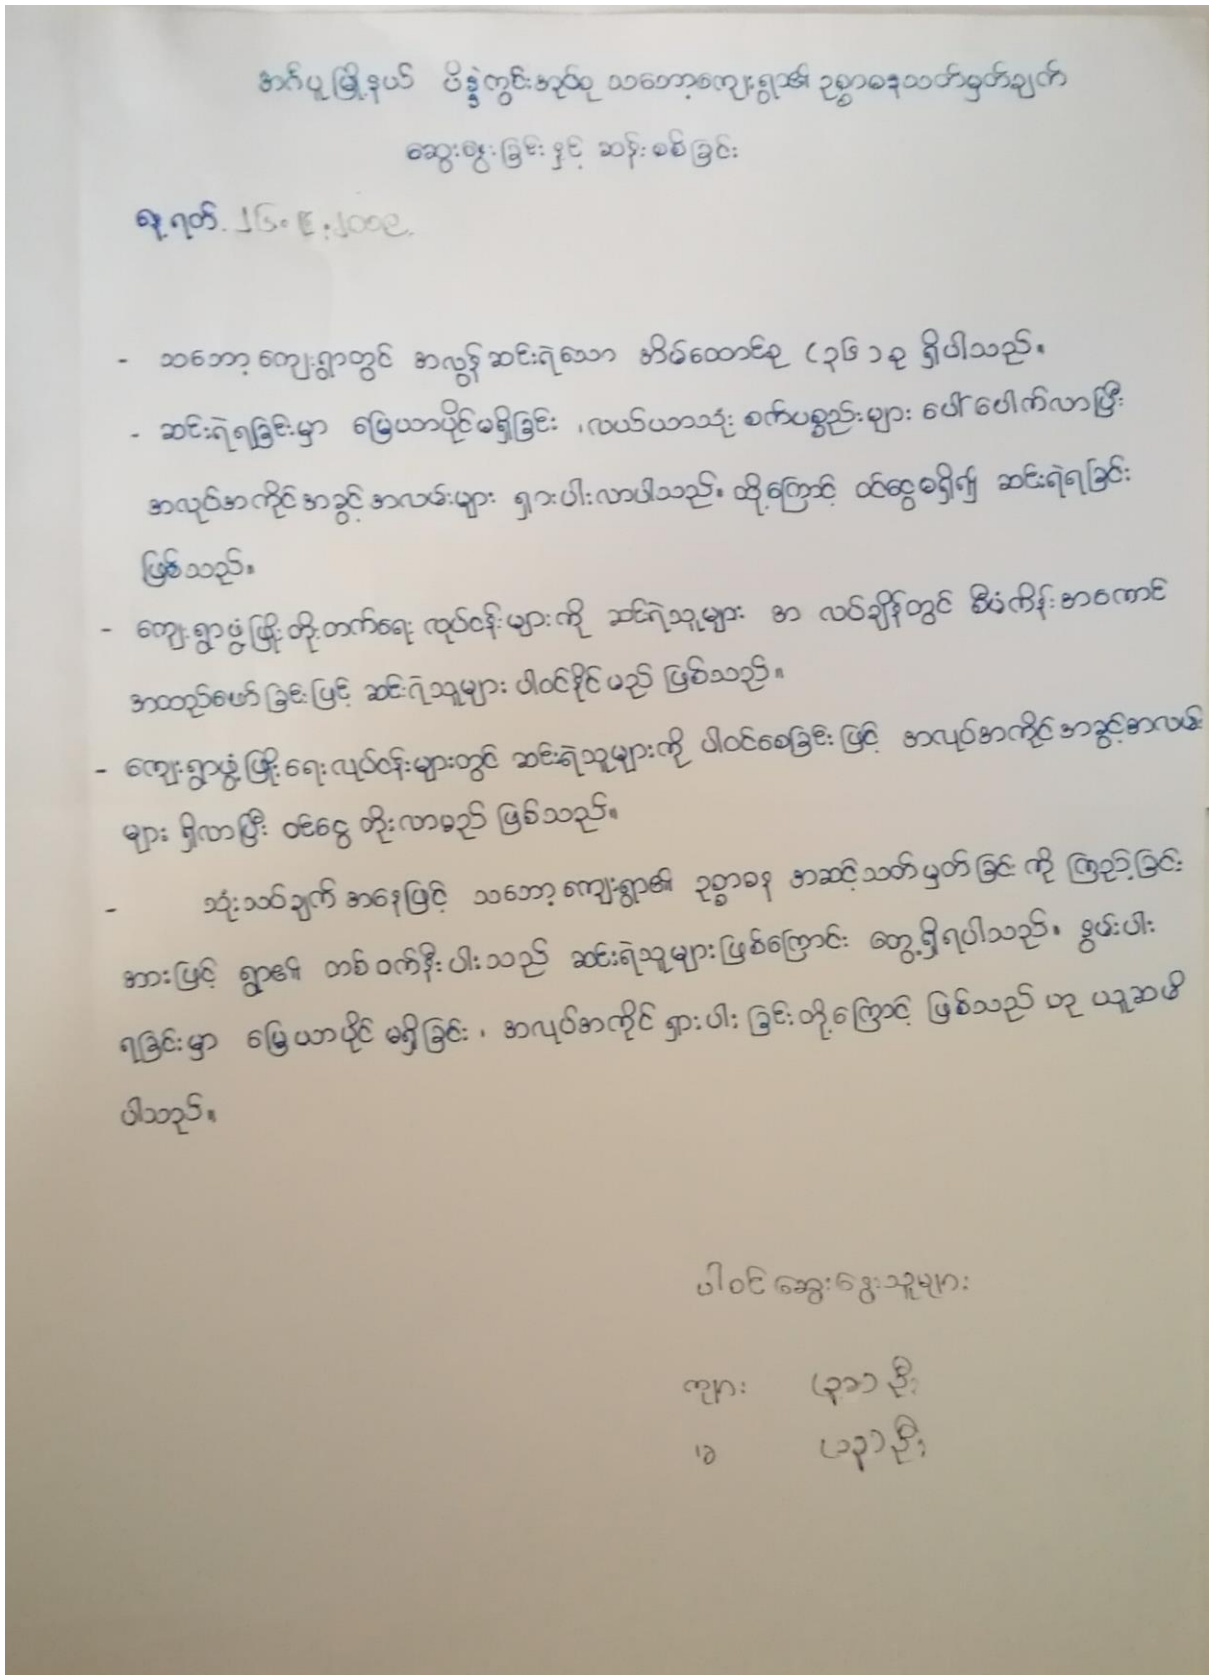 အင်္ဂပူမြို့နယ် ပိန္နဲကွင်းအုပ်စု သဘော့ကျေးရွာ၏ ဥစ္စာဓနသတ်မှတ်ချက်
ဆွေးနွေးခြင်းနှင့် ဆန်းစစ်ခြင်း
ရက်. ၂၆.၉.၂၀၁၉.
- သဘော့ကျေးရွာတွင် အလွန်ဆင်းရဲသော အိမ်ထောင်စု (၃၆) စု ရှိပါသည်။
- ဆင်းရဲရခြင်းမှာ မြေယာပိုင်မရှိခြင်း ၊လယ်ယာသုံး စက်ပစ္စည်းများ ပေါ်ပေါက်လာပြီး
အလုပ်အကိုင်အခွင့်အလမ်းများ ရှားပါးလာပါသည်။ ထို့ကြောင့် ဝင်ငွေမရှိ၍ ဆင်းရဲရခြင်း
ဖြစ်သည်။
- ကျေးရွာဖွံ့ဖြိုးတိုးတက်ရေး လုပ်ငန်းများကို ဆင်းရဲသူများ အလုပ်ချိန်တွင် စီမံကိန်းအကောင်
အထည်ဖော်ခြင်းဖြင့် ဆင်းရဲသူများ ပါဝင်နိုင်မည် ဖြစ်သည်။
- ကျေးရွာဖွံ့ဖြိုးရေးလုပ်ငန်းများတွင် ဆင်းရဲသူများကို ပါဝင်စေခြင်းဖြင့် အလုပ်အကိုင်အခွင့်အလမ်း
များ ရှိလာပြီး ဝင်ငွေ တိုးလာမည် ဖြစ်သည်။
- သုံးသပ်ချက်အနေဖြင့် သဘော့ကျေးရွာ၏ ဥစ္စာဓန အဆင့်သတ်မှတ်ခြင်းကို ကြည့်ခြင်း
အားဖြင့် ရွာ၏ တစ်ဝက်နီးပါးသည် ဆင်းရဲသူများဖြစ်ကြောင်း တွေ့ရှိရပါသည်။ နွမ်းပါး
ရခြင်းမှာ မြေယာပိုင် မရှိခြင်း ၊ အလုပ်အကိုင် ရှားပါးခြင်းတို့ကြောင့် ဖြစ်သည် ဟု ယူဆမိ
ပါသည်။
ပါဝင်ဆွေးနွေးသူများ
ကျား (၃၁) ဦး
မ (၁၃) ဦး